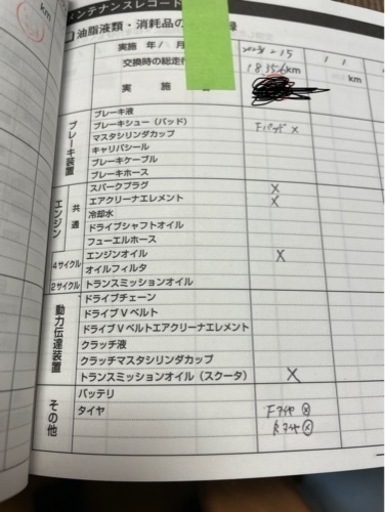 km
メンテナンスレコード
油脂液類・消耗品の
録
実施 年/月
交換時の総走行
18356km
km
実施
ブレーキ装置
ブレーキ液
ブレーキシュー(パッド)
Fパッド ×
マスタシリンダカップ
キャリパシール
ブレーキケーブル
ブレーキホース
エンジン
共通
スパークプラグ ×
エアクリーナエレメント ×
冷却水
ドライブシャフトオイル
フューエルホース
4サイクル
エンジンオイル ×
オイルフィルタ
2サイクル
トランスミッションオイル
動力伝達装置
ドライブチェーン
ドライブVベルト
ドライブVベルトエアクリーナエレメント
クラッチ液
クラッチマスタシリンダカップ
トランスミッションオイル(スクータ) ×
その他
バッテリ
タイヤ
Fタイヤ ⓧ
Rタイヤ ⓧ